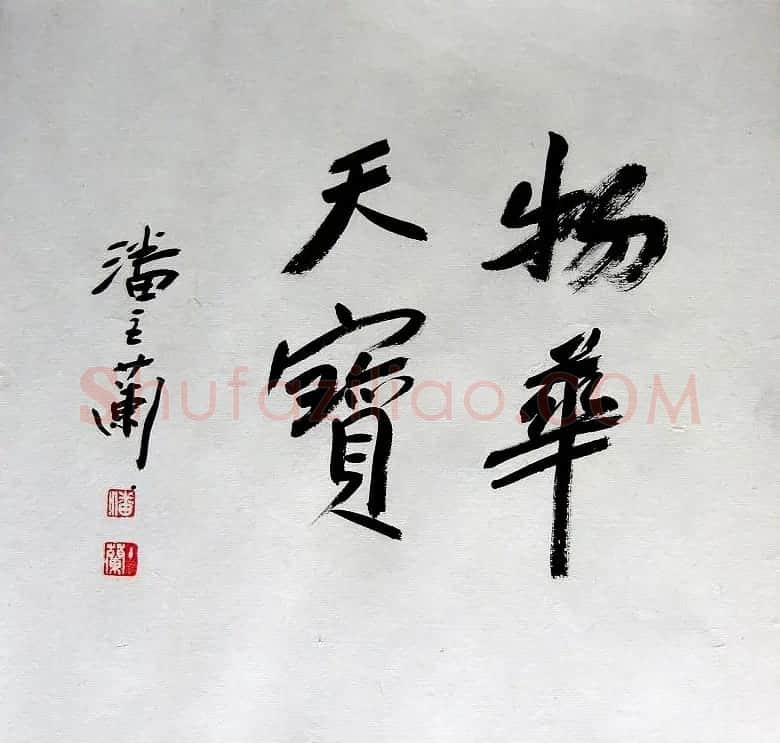 物華
天寶
潘主蘭
潘
主蘭
Shufaziliao.COM